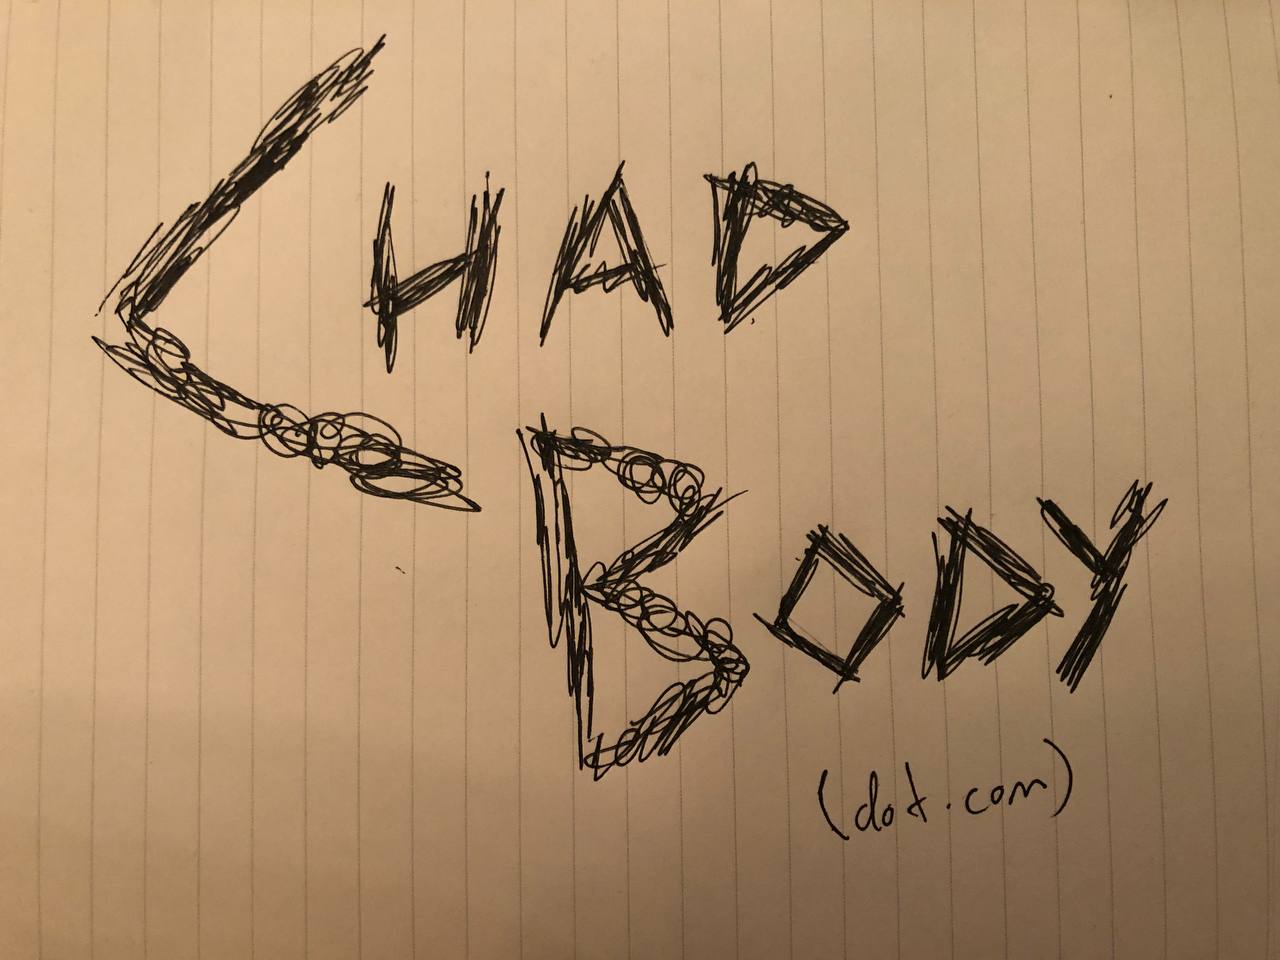 CHAD
BODY
(dot.com)